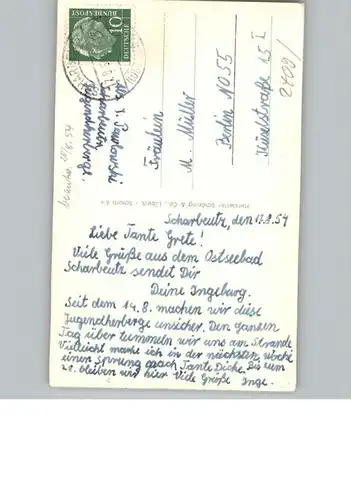 10
DEUTSCHE
BUNDESPOST
Abs. I.
Scharbeutz
Jugendherberge.
Fräulein
M. Müller
Berlin NO 55
15 I
2409/
Hersteller Schöning & Co., Lübeck
Scharbeutz, den 17.8.54
Liebe Tante Grete!
Viele Grüße aus dem Ostseebad
Scharbeutz sendet Dir
Deine Ingeburg.
Seit dem 14.8. machen wir diese
Jugendherberge unsicher. Den ganzen
Tag über tummeln wir uns am Strande
Vielleicht mache ich in der nächsten Woche
einen Sprung nach Tante Dicke. Bis zum
28. bleiben wir hier Viele Grüße Inge.